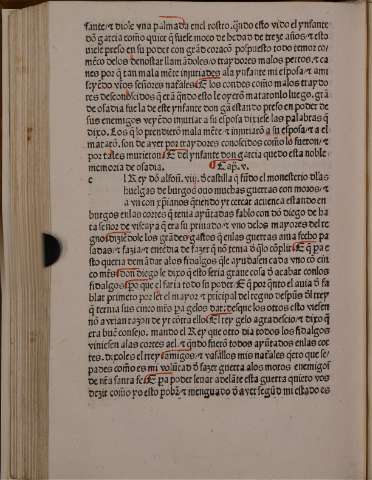 fante/ ⁊ diole vna palmada enel rostro. q̃ndo esto vido el ynfante
dõ garcia como quier q̃ fuese moço de hedad de treze años/ ⁊ esta
uiele preso en su poder con grãd coraçõ pospuesto todo temor co/
mẽço de los denostar llamãdoles/ o traydores malos perros/ ⁊ ca
nes por q̃ tan mala mẽte injuriades ala ynfante mi esposa/ ⁊ a mi
seyẽdo vr̃os señores naturales ⁊ los condes como malos traydo
res desconoscidos q̃ erã q̃ndo esto le oyerõ mataronlo luego. grã
de osadia fue la de este ynfante don gã estando preso en poder de
sus enemigos veyẽdo injuriar a su esposa dizirle las palabras q̃
dixo. Los q̃ lo prendierõ mala mẽte/ ⁊ injuriarõ a su esposa/ ⁊ a el
matarõ. son de aver por traydores conoscidos como lo fueron/ ⁊
por tales murieron ⁊ del ynfante don garcia quedo esta noble
memoria de osadia. Cap. v.
e l Rey dõ alfoñ. viij. d̃ castilla q̃ fũdo el monesterio d̃las
huelgas de burgos ouo muchas guerras con moros/ ⁊
a vn con xp̃ianos quẽndo yr cercar a cuenca estando en
burgos en las cortes q̃ tenia ayũtadas fablo con dõ diego de ha
ro señor de viscaya q̃ era su priuado/ ⁊ vno delos mayores del re
gno diziẽdole los grãdes gastos q̃ enlas guerras auia fecho pa
sadas/ ⁊ fazia/ ⁊ entẽdia de fazer q̃ nõ tenia d̃ q̃ lo cõplir ⁊ q̃ pa e
sto queria demãdar alos fidalgos q̃le ayudasen cada vno cõ cin
co mr̃s don diego le dixo q̃ esto seria graue cosa d̃ acabar con los
fidalgos po que el faria todo su poder ⁊ q̃ por q̃nto el auia d̃ fa
blar primero por ser el mayor/ ⁊ pricipal del regno despũs d̃l rey
q̃ ternia sus cinco mr̃s pa gelos dar. desque los otros esto viesen
nõ avrian razon de yr cõtra ello el rey gelo agradescio/ ⁊ dixo q̃
era buẽ consejo. mando el Rey que otro dia todos los fidalgos
viniesen alas cortes ael. ⁊ q̃ndo fuerõ todos ayũtados enlas cor
tes. dixoles el rey amigos/ ⁊ vasallos mis naturales q̃ro que se/
pades como es mi volũtad d̃ fazer guerra alos moros enemigos
de nr̃a santa fe ⁊ pa poder leuar adelãte esta guerra quiero vos
dezir como yo esto pobr̃/ ⁊ menguado d̃ aver segũd mi estado es